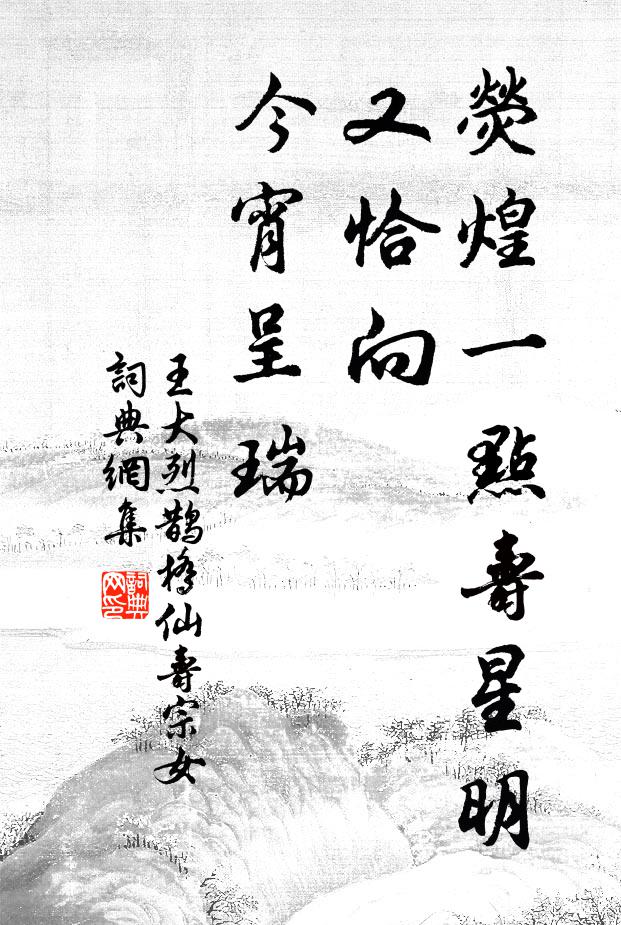 熒煌一點壽星明
又恰向
今宵呈瑞
王大烈鵲橋仙壽宗女
詞典網集
詞典網印